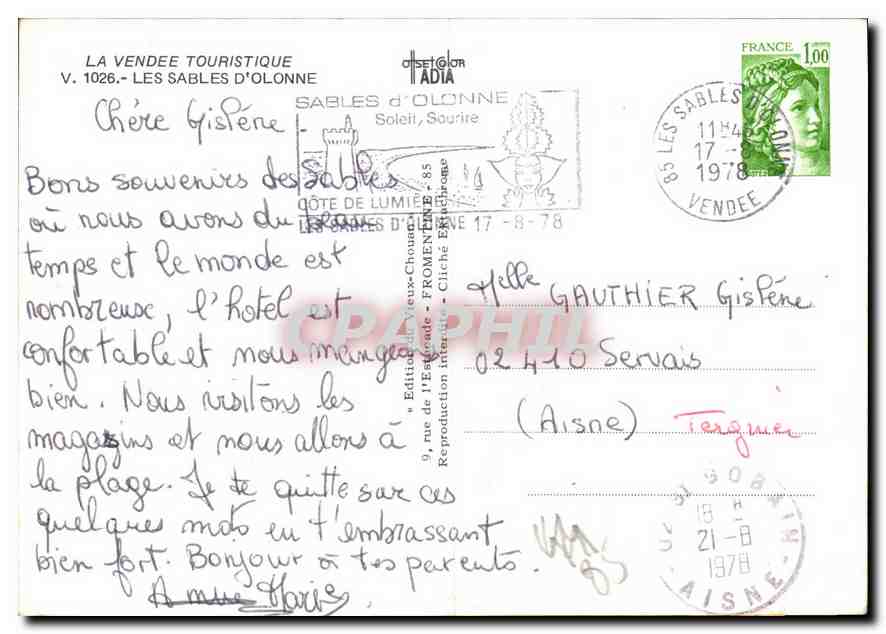 LA VENDEE TOURISTIQUE
V. 1026.- LES SABLES D'OLONNE
OFFSETCOLOR
ADIA
FRANCE 1,00
SABLES d'OLONNE
Soleil, Sourire
CÔTE DE LUMIERE
LES SABLES D'OLONNE 17-8-78
85 LES SABLES D'OLONNE
11H45
17 -8
1978
VENDEE
Chère Gislène
Bons souvenirs des Sables
où nous avons du beau
temps et le monde est
nombreuse, l'hotel est
confortable et nous mangeons
bien. Nous visitons les
magasins et nous allons à
la plage. Je te quitte sur ces
quelques mots en t'embrassant
bien fort. Bonjour à tes parents.
Marie
« Edition du Vieux-Chouan »
9, rue de l'Estacade - FROMENTINE - 85
Reproduction interdite - Cliché Ektachrome
Melle GAUTHIER Gislène
02410 Servais
(Aisne) Tergnier
CPAPHIL
ST GOBAIN
18 H
21-8
1978
AISNE